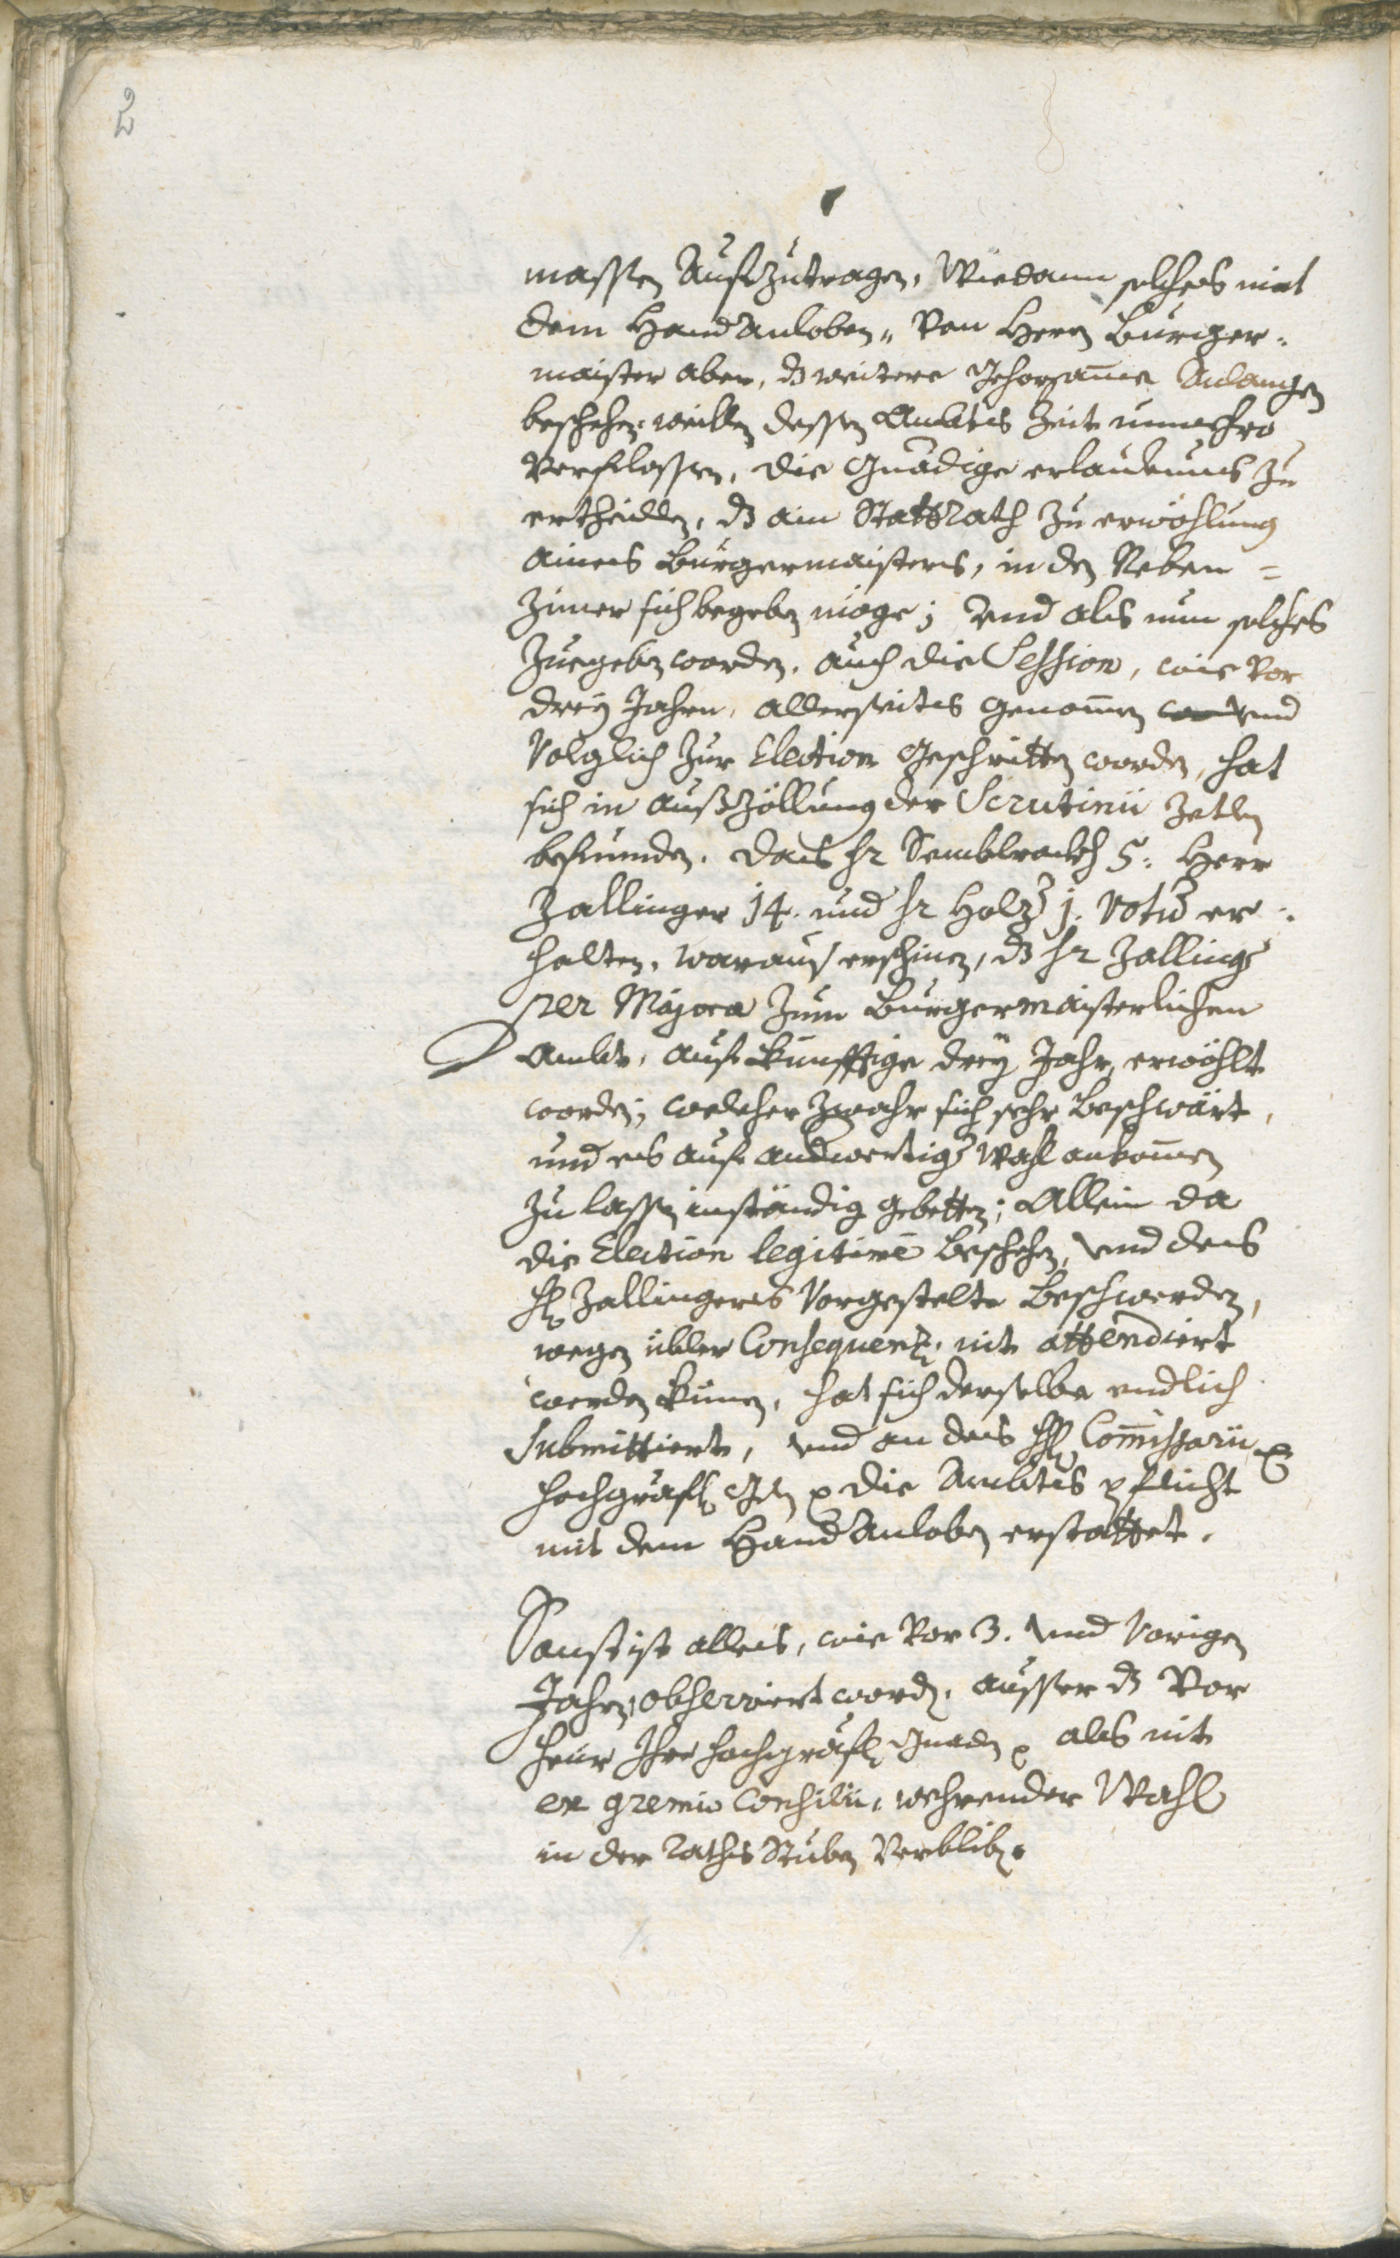 2
massen Aufzutragen, Wiedann solches mit
dem Handanloben„ Von Herrn Burger-
maister aber, dz weitere gehorsame Anlangen
beschehen: weillen dessen Ambts Zeit nunmehro
Verflossen, die Gnädige erlaubnus zu
ertheillen, dz ain StattRath zu erwöhlung
aines Burgermaisters, in den Neben=
Zimer sich begeben möge; Vnd als nun solches
zuegeben worden, auch die Session, wie vor
drey Jahren, allerseits genomen vnd
Volglich zur Election geschritten worden, hat
sich in außzöllung der Scrutinii Zetlen
befunden, das hr 5: Herr
Zallinger 14. und hr Holz 1. Vota er-
halten, woraus erschinen, dz hr Zallinger
per Majora zum Burgermaisterlichen
Ambt, auf künfftige drey Jahr, erwöhlt
worden; welcher zwahr sich sehr beschwärt,
und es auf andwertige Wahl ankomen
zu lassen inständig gebetten; Allein da
die Election legitimè beschehen, vnd des
H: Zallingers Vorgestelte Beschwerden,
wegen übler Consequenz, nit attendiert
werden künen, hat sich derselbe endlich
Submittiert, vnd an des H: Commissarii
hochgräfl: Gdn die Ambts pflicht
mit dem Handanloben erstattet.
Sonst ist alles, wie vor 3. vnd Vorigen
Jahren, observiert worden, ausser dz Vor
heur Ihre hochgräfl: Gnaden als nit
ex gremio Consilii, wehrender Wahl
in der Raths Stuben Verbliben.